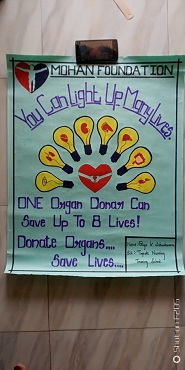 MOHAN FOUNDATION
You Can Light Up Many Lives.
ONE Organ Donar Can
Save Up To 8 Lives!
Donate Organs....
Save Lives....
Name:
Shot on